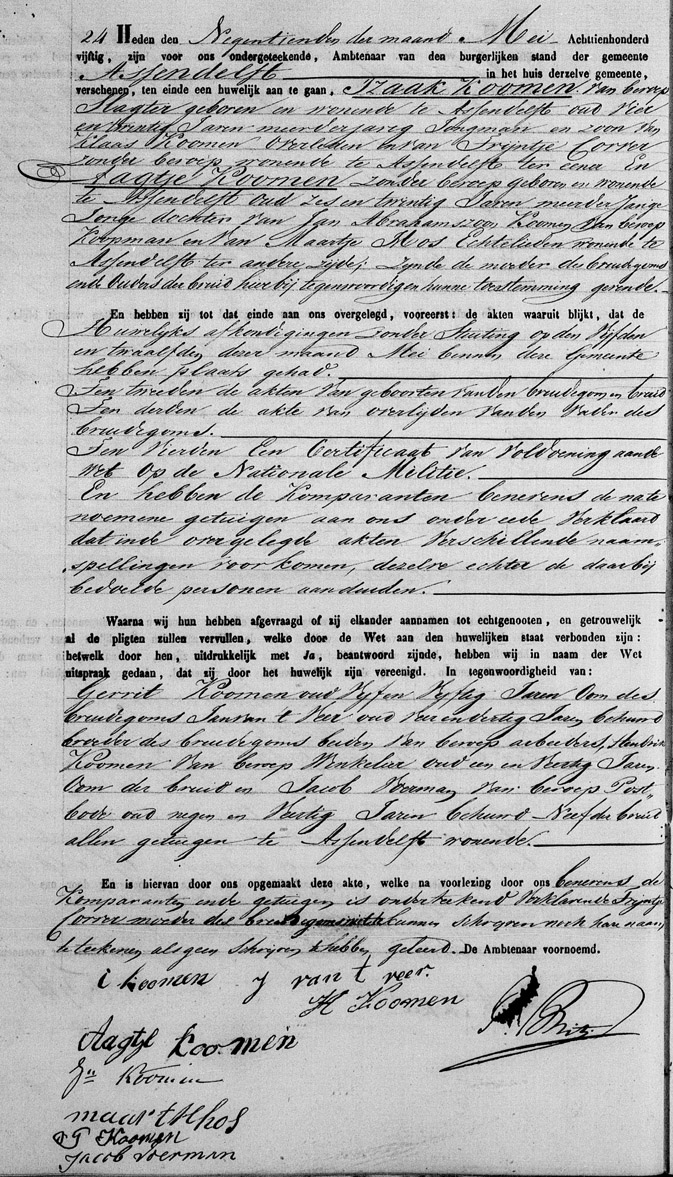 24 Heden den Negentienden der maand Mei Achttienhonderd
vijftig, zijn voor ons ondergeteekende, Ambtenaar van den burgerlijken stand der gemeente
Assendelft in het huis derzelve gemeente,
verschenen, ten einde een huwelijk aan te gaan, Izaak Koomen van beroep
Slagter geboren en wonende te Assendelft oud Vier
en twintig Jaren meerderjarig Jongman en zoon van
Klaas Koomen overleden en van Trijntje Correr
zonder beroep wonende te Assendelft ter eener En
Aagtje Koomen zonder beroep geboren en wonende
te Assendelft oud zes en twintig Jaren meerder Jarige
Jonge dochter van Jan Abrahamszoon Koomen van beroep
Koopman en van Maartje Mos Echtelieden wonende te
Assendelft ter andere zijde; zynde de moeder des bruidegoms
ende Ouders der bruid hier bij tegenwoordig en hunne toestemming gevende.
En hebben zij tot dat einde aan ons overgelegd, vooreerst: de akten waaruit blijkt, dat de
Huwelijks afkondigingen zonder Stuiting op den Vijfden
en twaalfden dezer maand Mei binnen deze Gemeente
hebben plaats gehad.
Ten tweeden de akten van geboorten van den bruidegom en bruid
Ten derden de akte van overlijden van den Vader des
bruidegoms.
Ten Vierden Een Certificaat van Voldoening aan de
Wet op de Nationale Militie.
En hebben de Komparanten benevens de nate
noemene getuigen aan ons onder eede Verklaard
dat in de overgelegde akten Verschillende naam-
spellingen voorkomen, dezelve echter de daar bij
bedoelde personen aanduiden.
Waarna wij hun hebben afgevraagd of zij elkander aannamen tot echtgenooten, en getrouwelijk
al de pligten zullen vervullen, welke door de Wet aan den huwelijken staat verbonden zijn:
hetwelk door hen, uitdrukkelijk met Ja, beantwoord zijnde, hebben wij in naam der Wet
uitspraak gedaan, dat zij door het huwelijk zijn vereenigd. In tegenwoordigheid van:
Gerrit Koomen oud Vyf en Vyftig Jaren Oom des
bruidegoms Jan van 't Veer oud Vier en dertig Jaren behuwd
broeder des bruidegoms beiden van beroep arbeiders, Hendrik
Koomen van beroep Winkelier oud een en Veertig Jaren
Oom der bruid en Jacob Voerman van beroep Post-
bode oud negen en Veertig Jaren behuwd Neef der bruid
allen getuigen te Assendelft wonende.
En is hiervan door ons opgemaakt deze akte, welke na voorlezing door ons benevens de
Komparanten ende getuigen is onderteekend Verklarende Trijntje
Correr moeder des bruidegoms niet te kunnen schryven noch haar naam
te teekenen als geen Schrijven te hebben geleerd. De Ambtenaar voornoemd.
i koomen J van t veer.
H Koomen
Aagtje Koomen
Jn Koomen
maartje Mos
G Koomen
Jacob Voerman